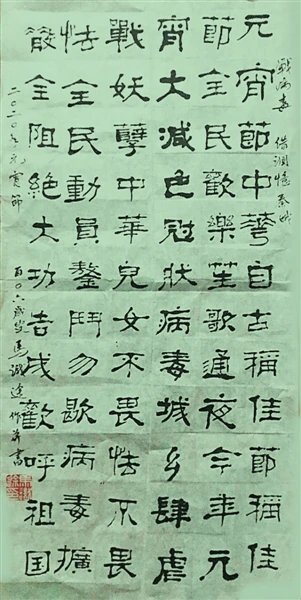 战病毒 借调憶秦娥
元宵節中華自古稱佳節稱佳
節全民歡樂笙歌通夜今年元
宵大減色冠狀病毒城乡肆虐
戰妖孽中華兒女不畏怯不畏
怯全民動員鏖鬥勿歇病毒擴
散全阻絕大功告成歡呼祖国
二〇二〇年元宵節 百〇六歲叟馬識途作并書